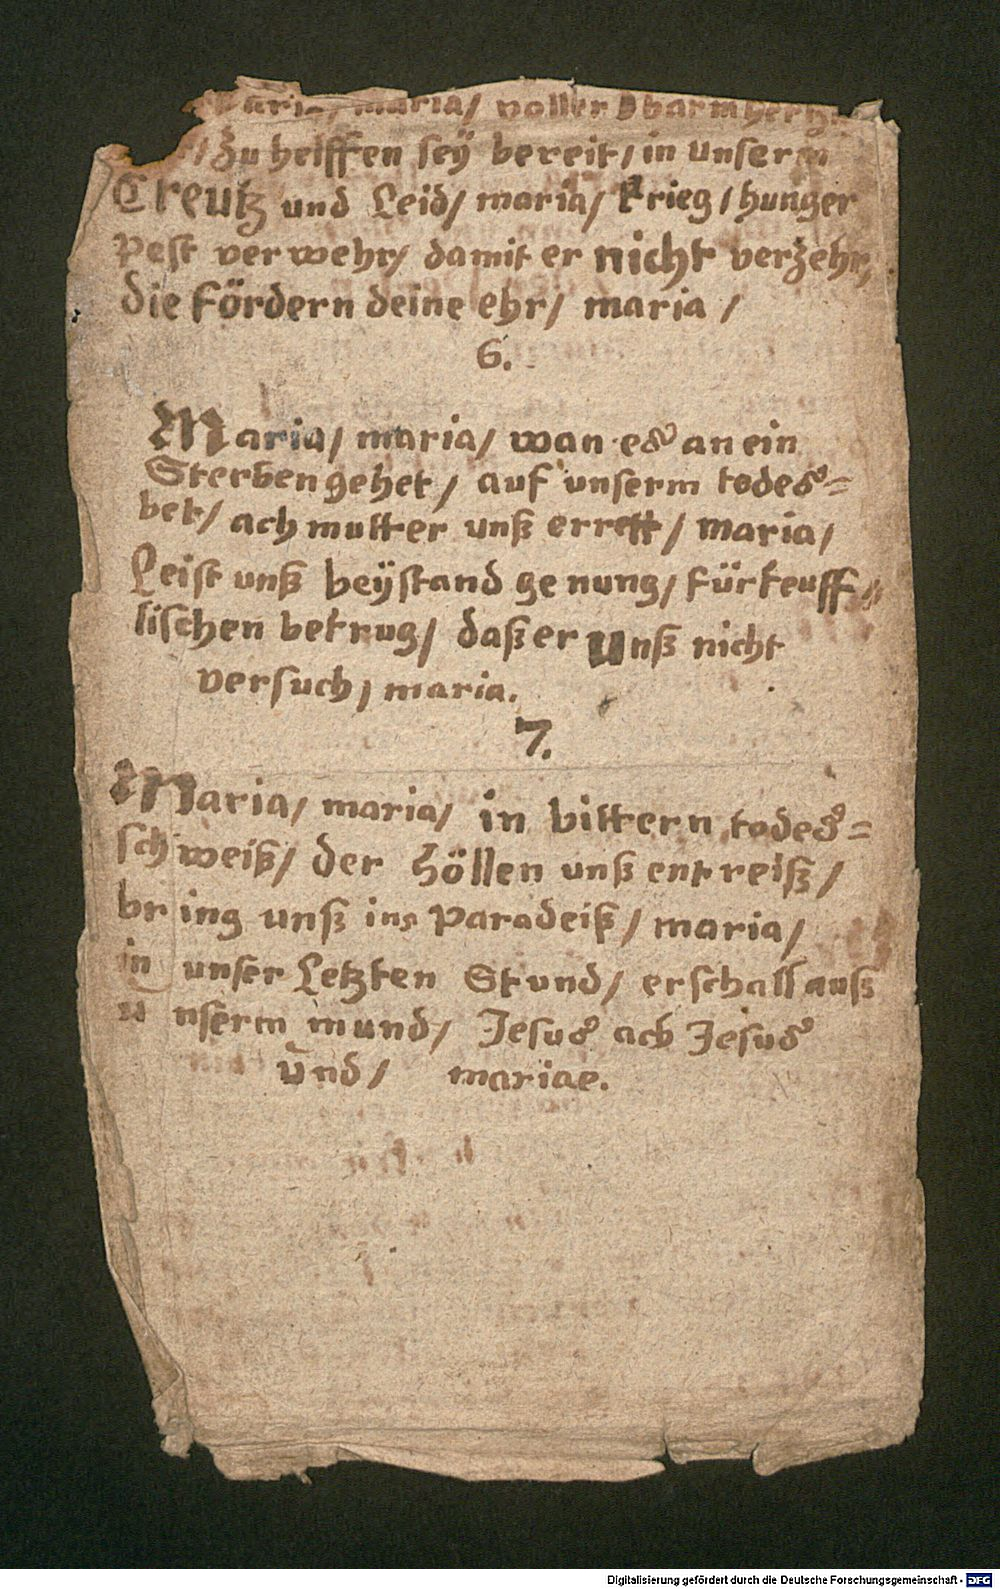 maria, maria/ voller Barmhertzi
/ Zu helffen seÿ bereit/ in unserm
Creutz und Leid/ maria/ Krieg/ hunger
Pest verwehr/ damit er nicht verzehr,
die fördern deine ehr/ maria /
6.
Maria/ maria/ wan es an ein
Sterben gehet/ auf unserm todes=
bet/ ach mutter unß errett/ maria/
Leist unß beÿstand genung/ für teuff=
lischen betrug/ daß er unß nicht
versuch/ maria.
7.
Maria/ maria/ in bittern todes=
schweiß/ der höllen unß entreiß/
bring unß ins Paradeiß/ maria/
in unser Letzten Stund/ erschall auß
unserm mund/ Jesus ach Jesus
und/ mariae.
Digitalisierung gefördert durch die Deutsche Forschungsgemeinschaft - DFG